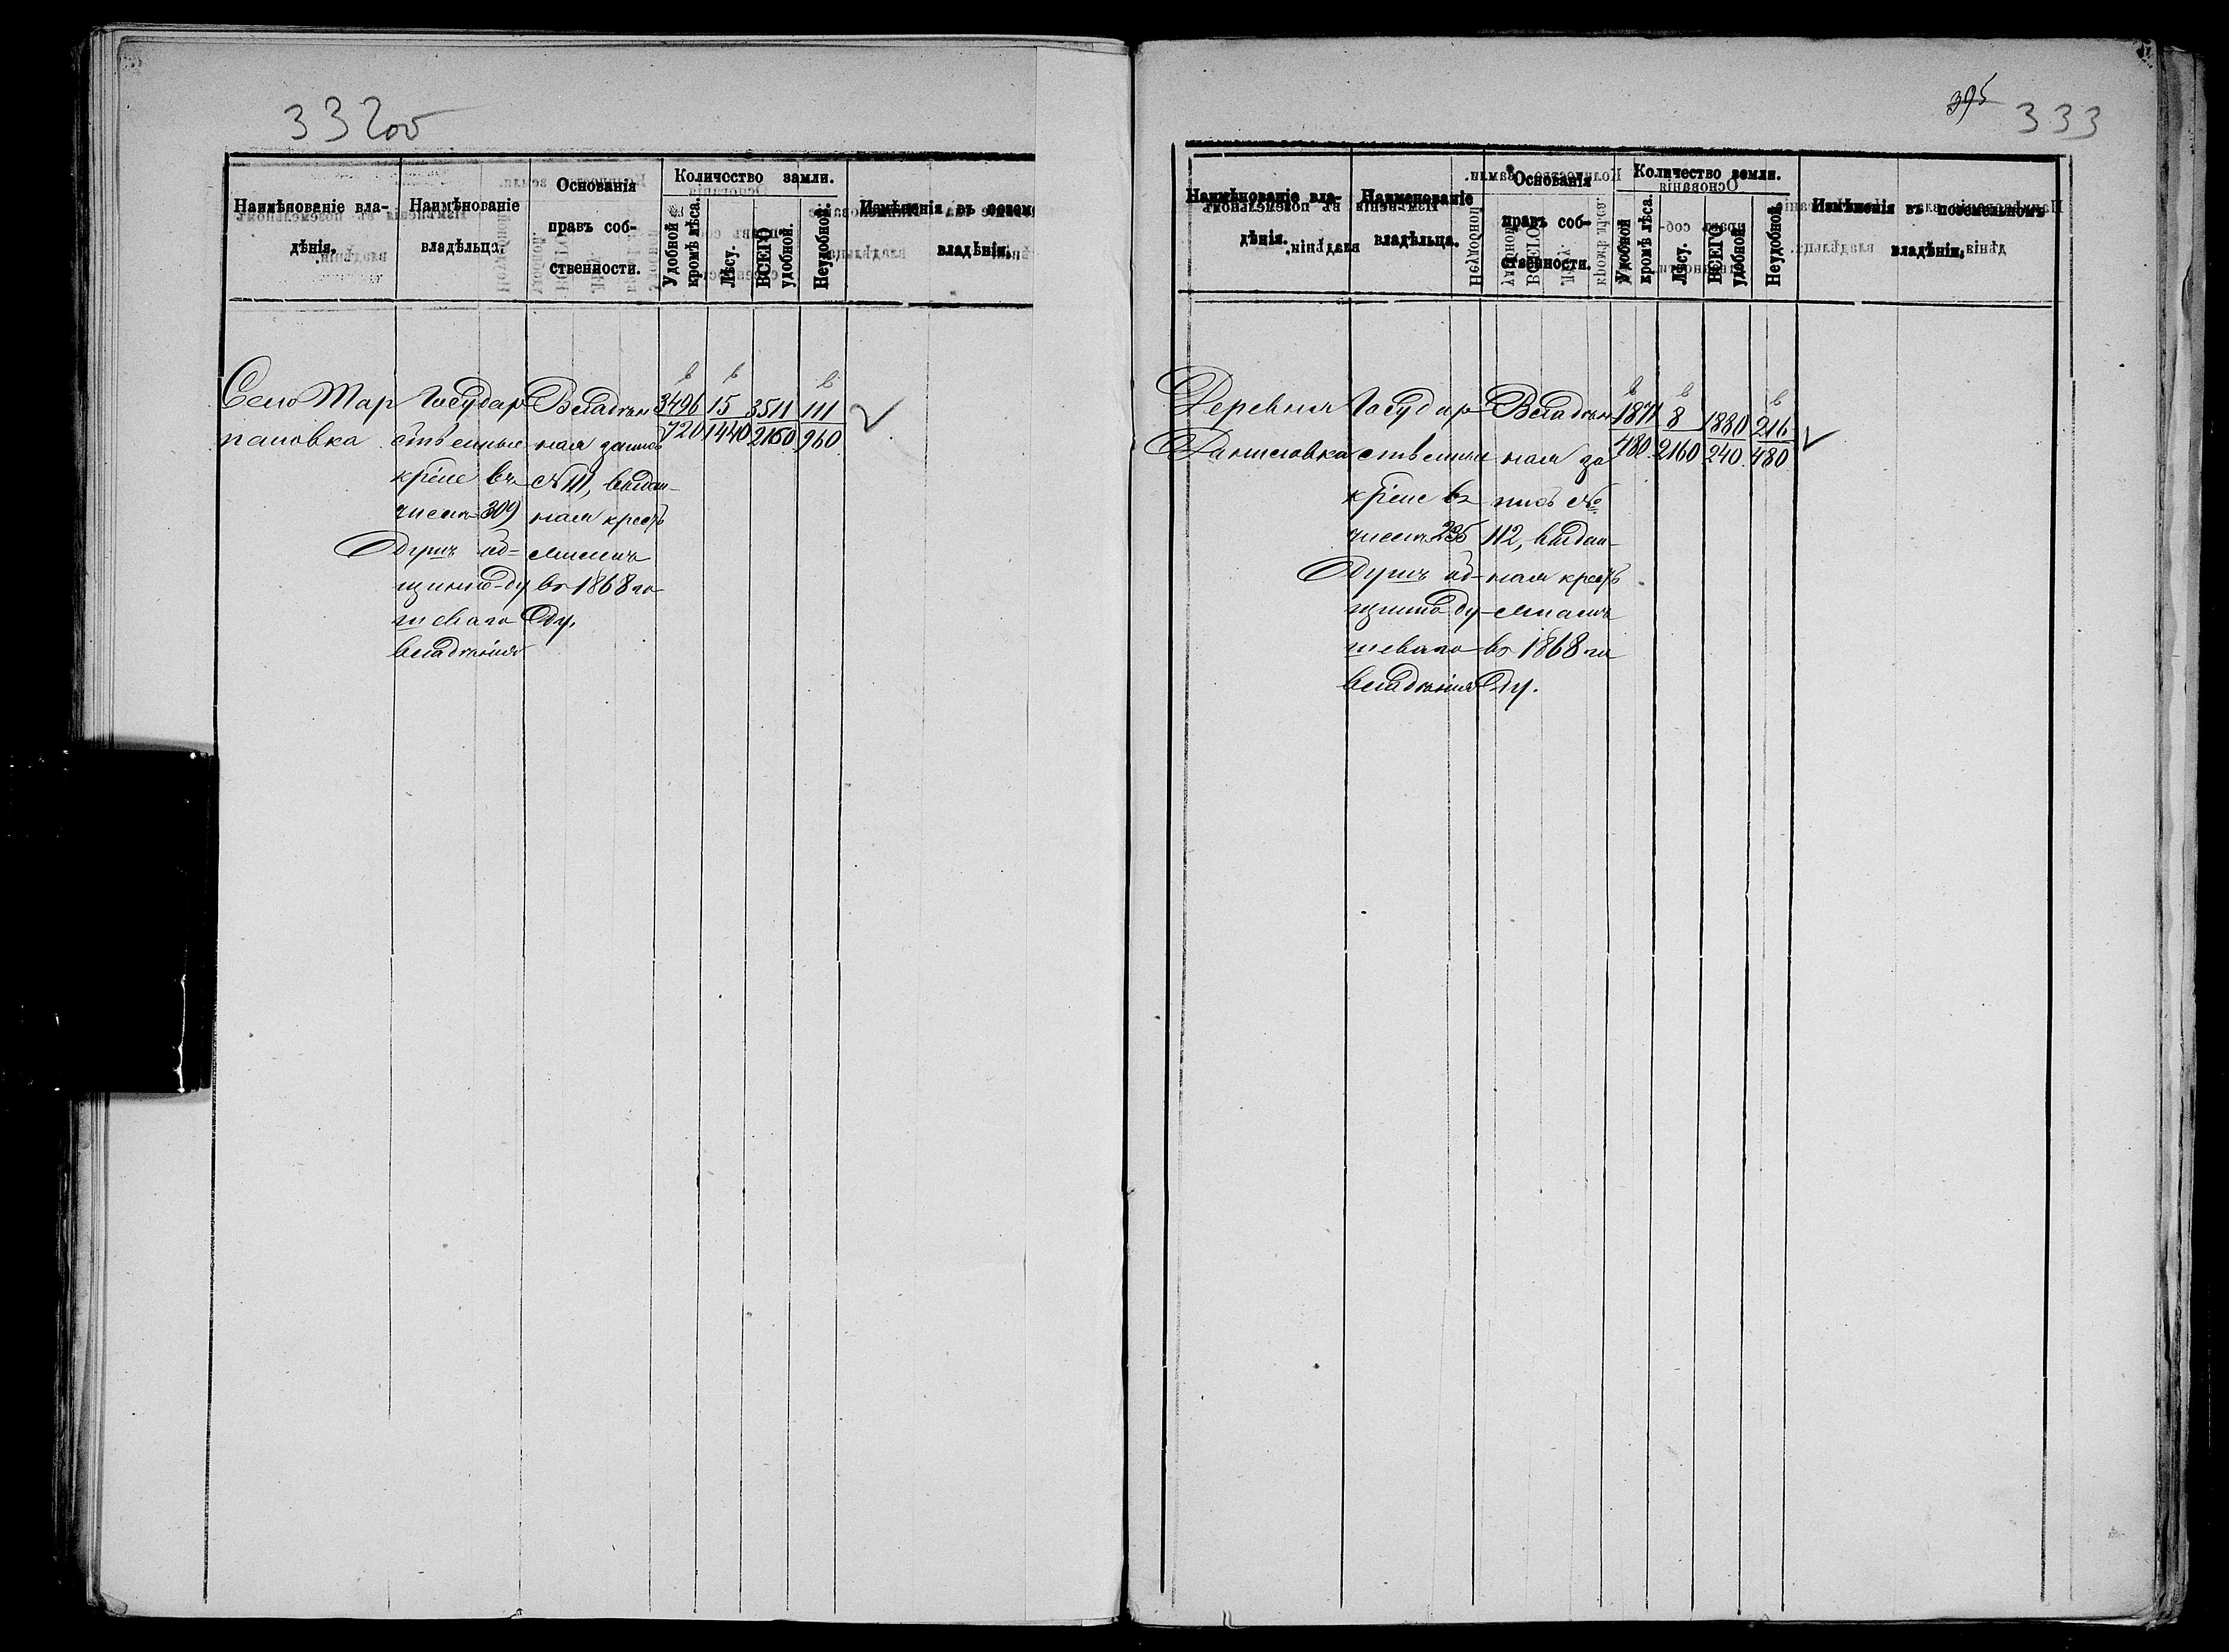 332об
Наимѣнованіе вла-
дѣнія.
Наимѣнованіе
владѣльца.
Основанія
правъ соб-
ственности.
Количество земли.
Удобной
кромѣ лѣса.
Лѣсу.
ВСЕГО
удобной.
Неудобной.
Измѣненія въ позем
владѣніи.
Село Тар
пановка
Государ
ственные
кр-не въ
числѣ 309
душъ об-
щинно-ду
шеваго
владѣнія
Владѣн
ная запись
№ 111, выдан-
ная кресть
янамъ
въ 1868 го
ду.
3496
720
15
1440
3511
2160
111
960
395
333
Наимѣнованіе вла-
дѣнія.
Наименованіе
владѣльца.
Основанія
правъ соб-
ственности.
Количество земли.
Удобной
кромѣ лѣса.
Лѣсу.
ВСЕГО
удобной.
Неудобной.
Измѣненія въ поземельномъ
владѣніи.
Деревня
Даниловка
Государ-
ственные
кр-не въ
числѣ 235
душъ об-
щинно ду-
шеваго
владѣнія
Владѣн
ная за
пись №
112, выдан-
ная кресть
янамъ
въ 1868 го
ду.
1871
480
8
2160
1880
240
216
480